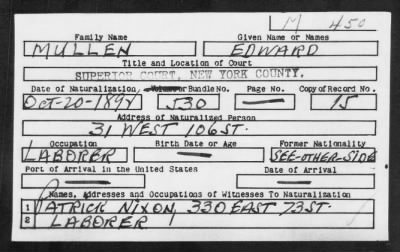 M 450
Family Name Given Name or Names
MULLEN EDWARD
Title and Location of Court
SUPERIOR COURT, NEW YORK COUNTY.
Date of Naturalization Volume or Bundle No. Page No. Copy of Record No.
OCT-20-1892 530 — 15
Address of Naturalized Person
31 WEST 106 ST.
Occupation Birth Date or Age Former Nationality
LABORER — SEE-OTHER-SIDE
Port of Arrival in the United States Date of Arrival
— —
Names, Addresses and Occupations of Witnesses To Naturalization
1 PATRICK NIXON, 330 EAST 73 ST.
2 LABORER